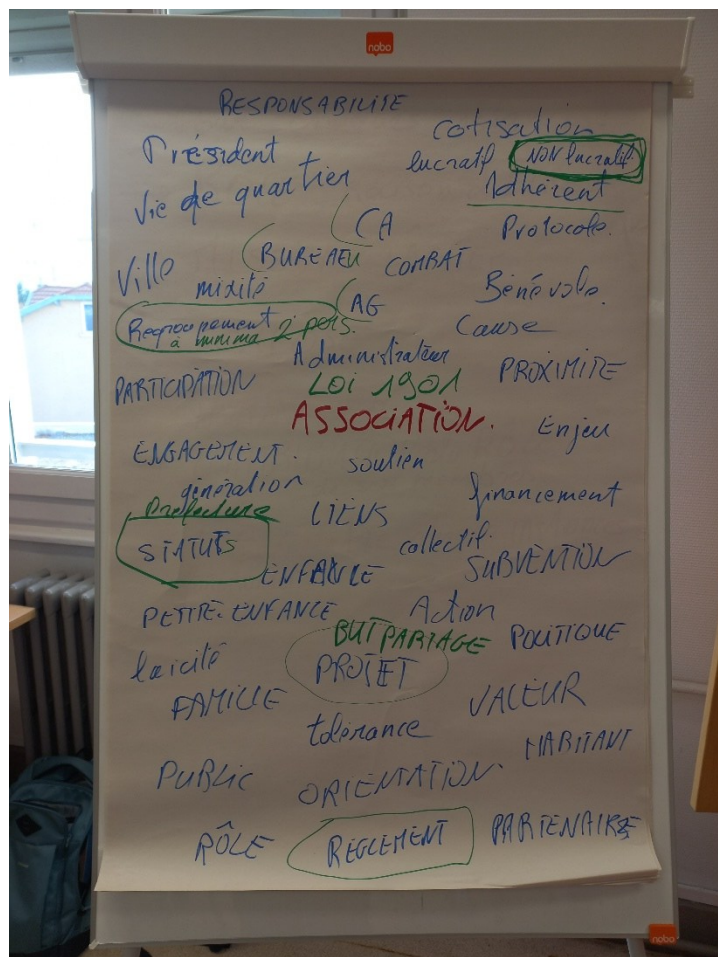 nobo
RESPONSABILITE
Président
cotisation
lucratif NON lucratif.
Vie de quartier
Adhérent
CA
Protocole.
BUREAU
COMBAT
Ville
mixité
Bénévole.
AG
Regroupement
à minima 2 pers.
Cause
Administrateur
PARTICIPATION
LOI 1901
PROXIMITE
ASSOCIATION.
Enjeu
ENGAGEMENT.
soutien
génération
financement
Préfecture
LIENS
STATUTS
collectif.
ENFANCE
SUBVENTION
PETITE. ENFANCE
Action
BUT PARTAGE
POLITIQUE
laïcité
PROJET
FAMILLE
VALEUR
tolérance
HABITANT
PUBLIC
ORIENTATION.
RÔLE
REGLEMENT
PARTENAIRE
nobo